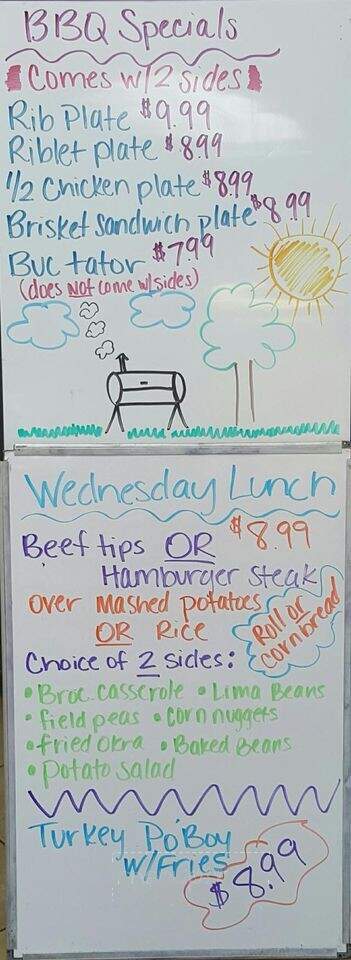 BBQ Specials
Comes w/2 sides
Rib Plate $9.99
Riblet plate $8.99
1/2 Chicken plate $8.99
Brisket Sandwich plate $8.99
Buc tator $7.99
(does NOT come w/sides)
Wednesday Lunch
Beef tips OR $8.99
Hamburger Steak
Over Mashed potatoes
OR Rice
Roll or
cornbread
Choice of 2 sides:
• Broc. casserole • Lima Beans
• field peas • corn nuggets
• fried okra • Baked Beans
• potato salad
Turkey Po'Boy
w/Fries $8.99